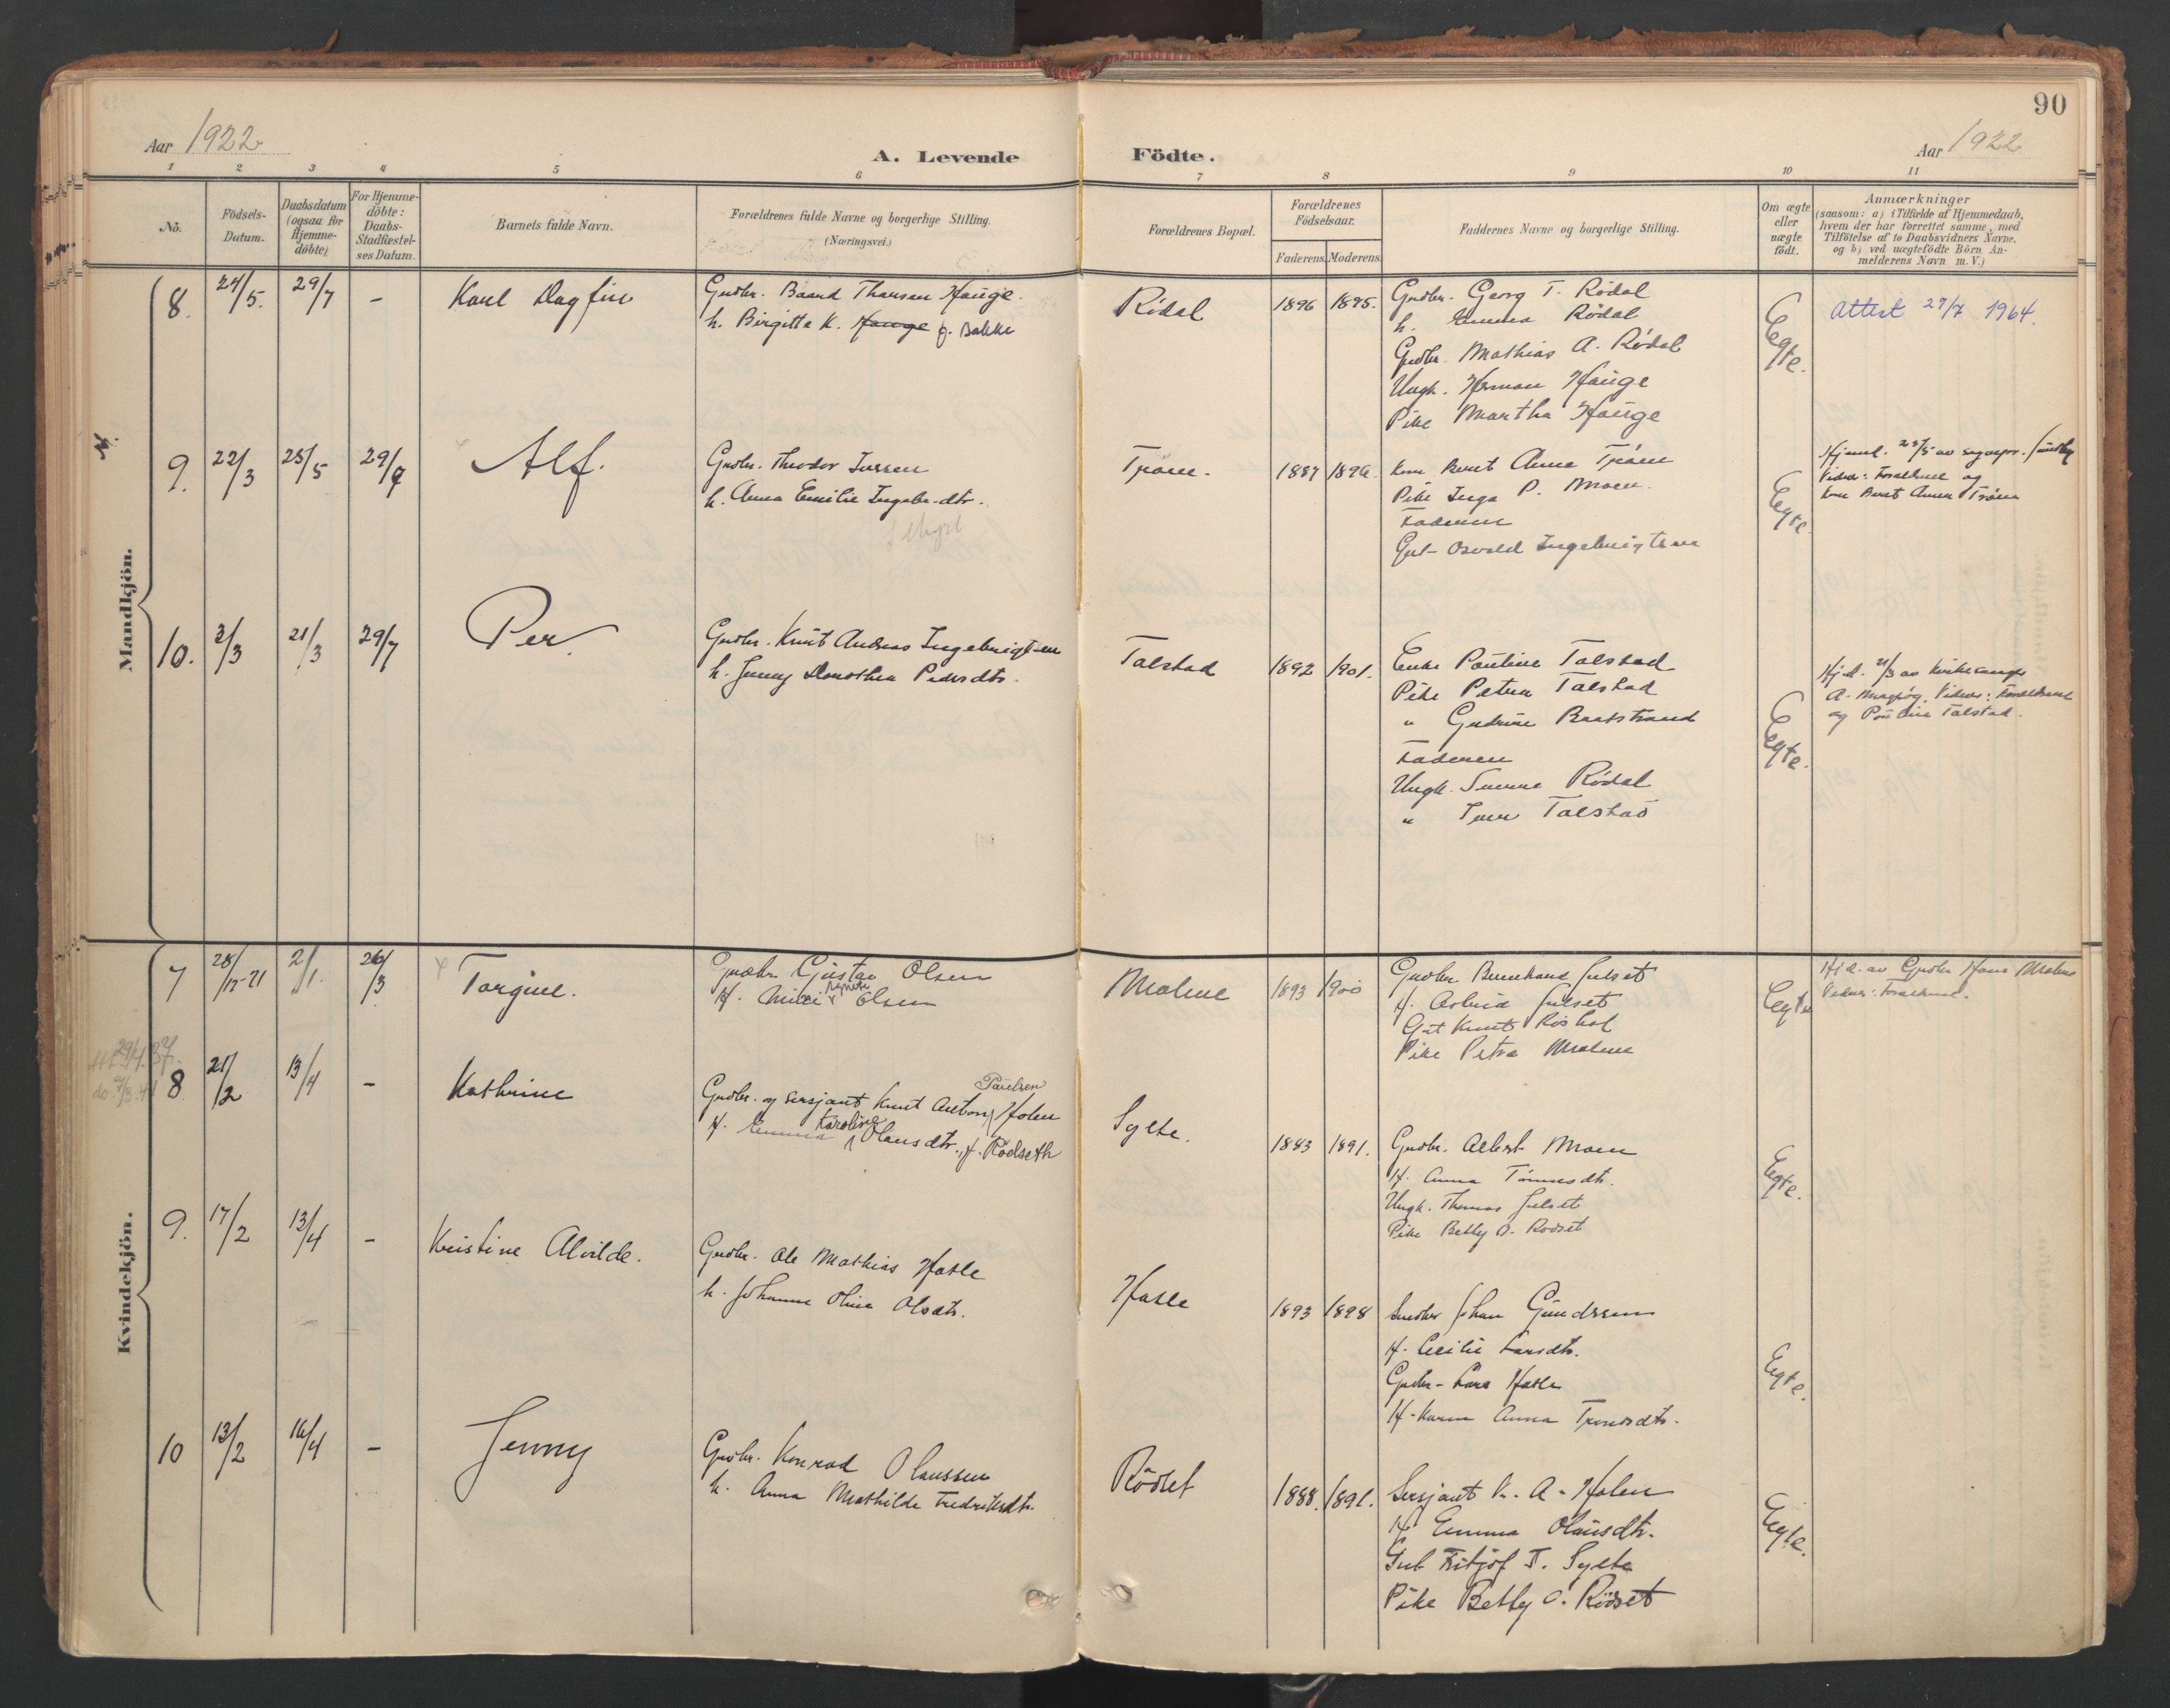 90
Aar 1922
A. Levende Födte.
Aar 1922
1 2 3 4 5 6 7 8 9 10 11
No.
Födsels-
Datum.
Daabsdatum
(ogsaa for
Hjemme-
döbte)
For Hjemme-
döbte:
Daabs-
Stadfæstel-
ses Datum.
Barnets fulde Navn.
Forældrenes fulde Navne og borgerlige Stilling.
(Næringsvei.)
Forældrenes Bopæl.
Forældrenes
Födselsaar.
Faderens. Moderens.
Faddernes Navne og borgerlige Stilling.
Om ægte
eller
uægte
födt.
Anmærkninger
(saasom: a) i Tilfælde af Hjemmedaab,
hvem der har forrettet samme, med
Tilföielse af to Daabsvidners Navne.
og b) ved uægtefödte Börn An-
melderens Navn m. V.)
Mandkjön.
8. 24/5. 29/7 - Karl Dagfin
Gudbr. Baard Tharsen Hauge.
h. Birgitte K. Hauge f. Bakke
Rødal 1896 1895.
Gudbr. Georg T. Rødal
h. Emma Rødal
Gudbr. Mathias A. Rødal
Ungk. Herman Hauge
Pike Martha Hauge
Egte.
Attest 29/7 1964.
9. 22/3 25/5 29/7 Alf.
Gudbr. Theodor Iversen
h. Anna Emilie Ingebr.dtr.
1887
Kone Berit Anna
Pike Inga P. Moen
Faderen
Gut Osvald Ingebrigtsen
Egte.
Vidner: Forældrene og
Kone Berit Anna
10. 3/3 21/3 29/7 Per.
Gudbr. Knut Andreas Ingebrigtsen
h. Jenny Dorothea Pedersdtr.
Talstad 1892 1901.
Enke Pauline Talstad
Pike Petra Talstad
" Gudrun Baststrand
Faderen
Ungk. Rødal
" Iver Talstad
Egte.
Hj.d. 21/3 av kirkesanger
A. Vidner: Forældrene
og Pauline Talstad.
Kvindekjön.
7 28/12-21 2/1. 26/3 Torgine.
Gudbr. Gustav Olsen
H. Olsen
Malme 1893 1900
Gudbr. Bernhard Julset
H. Julset
Gut Knut
Pike Petra Malme
Egte
Hj.d. av Gudbr Hans Malme
Vidner: Forældrene.
8 21/2 13/4 - Kathrine
Paulsen
Gudbr. og sersjant Knut Anton Holen
Karoline
H. Emma Olausdtr., f. Rødseth
Sylte. 1883 1891.
Gudbr. Albert Moen
H. Anna Tønnesdtr.
Ungk. Thomas Julset
Pike Betty O. Rødset
Egte.
9. 17/2 13/4 - Kristine Alvilde.
Gudbr. Ole Mathias Hasle
h. Johanne Oline Olsdtr.
Hasle 1893 1898
Johan Gundersen
H. Cecilie Larsdtr.
Gudbr. Lars Hasle
H. Karen Anna
Egte.
10 13/2 16/4 - Jenny
Gudbr. Konrad Olaussen
h. Anna Mathilde Fredriksdtr.
Rødset 1888. 1891.
Sersjant K. A. Holen
H. Emma Olausdtr.
Gut Fritjof T. Sylte
Pike Betty O. Rødset
Egte.